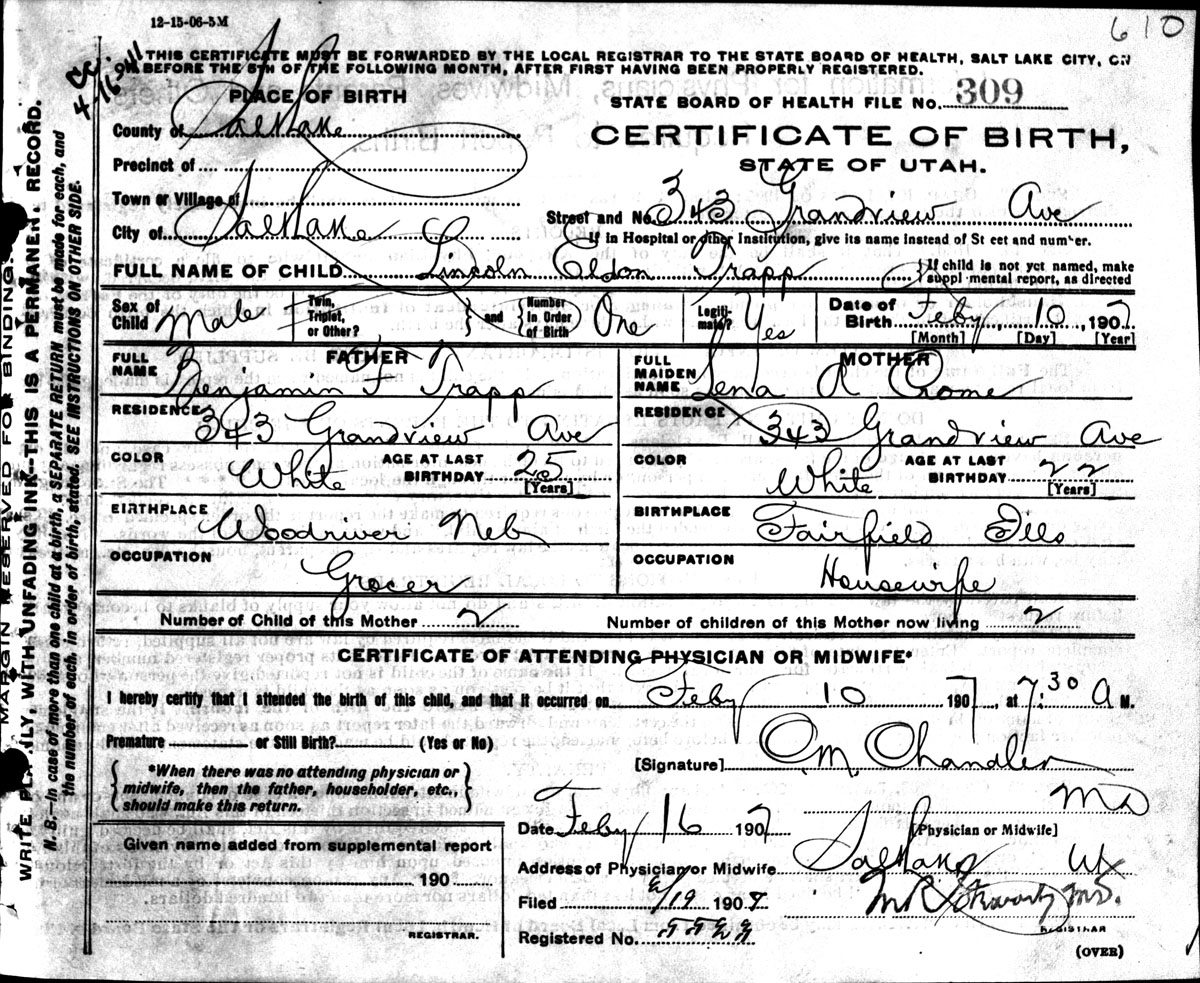 12-15-06-5M
610
THIS CERTIFICATE MUST BE FORWARDED BY THE LOCAL REGISTRAR TO THE STATE BOARD OF HEALTH, SALT LAKE CITY, ON
OR BEFORE THE 5TH OF THE FOLLOWING MONTH, AFTER FIRST HAVING BEEN PROPERLY REGISTERED.
PLACE OF BIRTH
STATE BOARD OF HEALTH FILE No. 309
County of Salt Lake
CERTIFICATE OF BIRTH,
Precinct of
STATE OF UTAH.
Town or Village of
Street and No. 343 Grandview Ave
City of Salt Lake C
If in Hospital or other Institution, give its name instead of St eet and number.
FULL NAME OF CHILD Lincoln Eldon Trapp
If child is not yet named, make
suppl mental report, as directed
Sex of Child Male
Twin, Triplet, or Other?
and
Number in Order of Birth One
Legiti-mate? Yes
Date of Birth Feby, 10, 1907
[Month] [Day] [Year]
FATHER
FULL NAME Benjamin F Trapp
RESIDENCE 343 Grandview Ave
COLOR White
AGE AT LAST BIRTHDAY 25
[Years]
BIRTHPLACE Woodriver Neb
OCCUPATION Grocer
MOTHER
FULL MAIDEN NAME Lena R Crome
RESIDENCE 343 Grandview Ave
COLOR White
AGE AT LAST BIRTHDAY 22
[Years]
BIRTHPLACE Fairfield Ills
OCCUPATION Housewife
Number of Child of this Mother 2
Number of children of this Mother now living 2
CERTIFICATE OF ATTENDING PHYSICIAN OR MIDWIFE*
I hereby certify that I attended the birth of this child, and that it occurred on Feby 10 1907, at 7:30 A M.
Premature or Still Birth? (Yes or No)
[Signature] O.M. Chandler
MD
*When there was no attending physician or
midwife, then the father, householder, etc.,
should make this return.
Date Feby 16 1907
[Physician or Midwife]
Given name added from supplemental report
190
REGISTRAR.
Address of Physician or Midwife Salt Lake Ut
Filed 190
Registered No.
REGISTRAR
(OVER)
MARGIN RESERVED FOR BINDING
WRITE PLAINLY, WITH UNFADING INK--THIS IS A PERMANENT RECORD.
N. B.--In case of more than one child at a birth, a SEPARATE RETURN must be made for each, and
the number of each, in order of birth, stated. SEE INSTRUCTIONS ON OTHER SIDE.